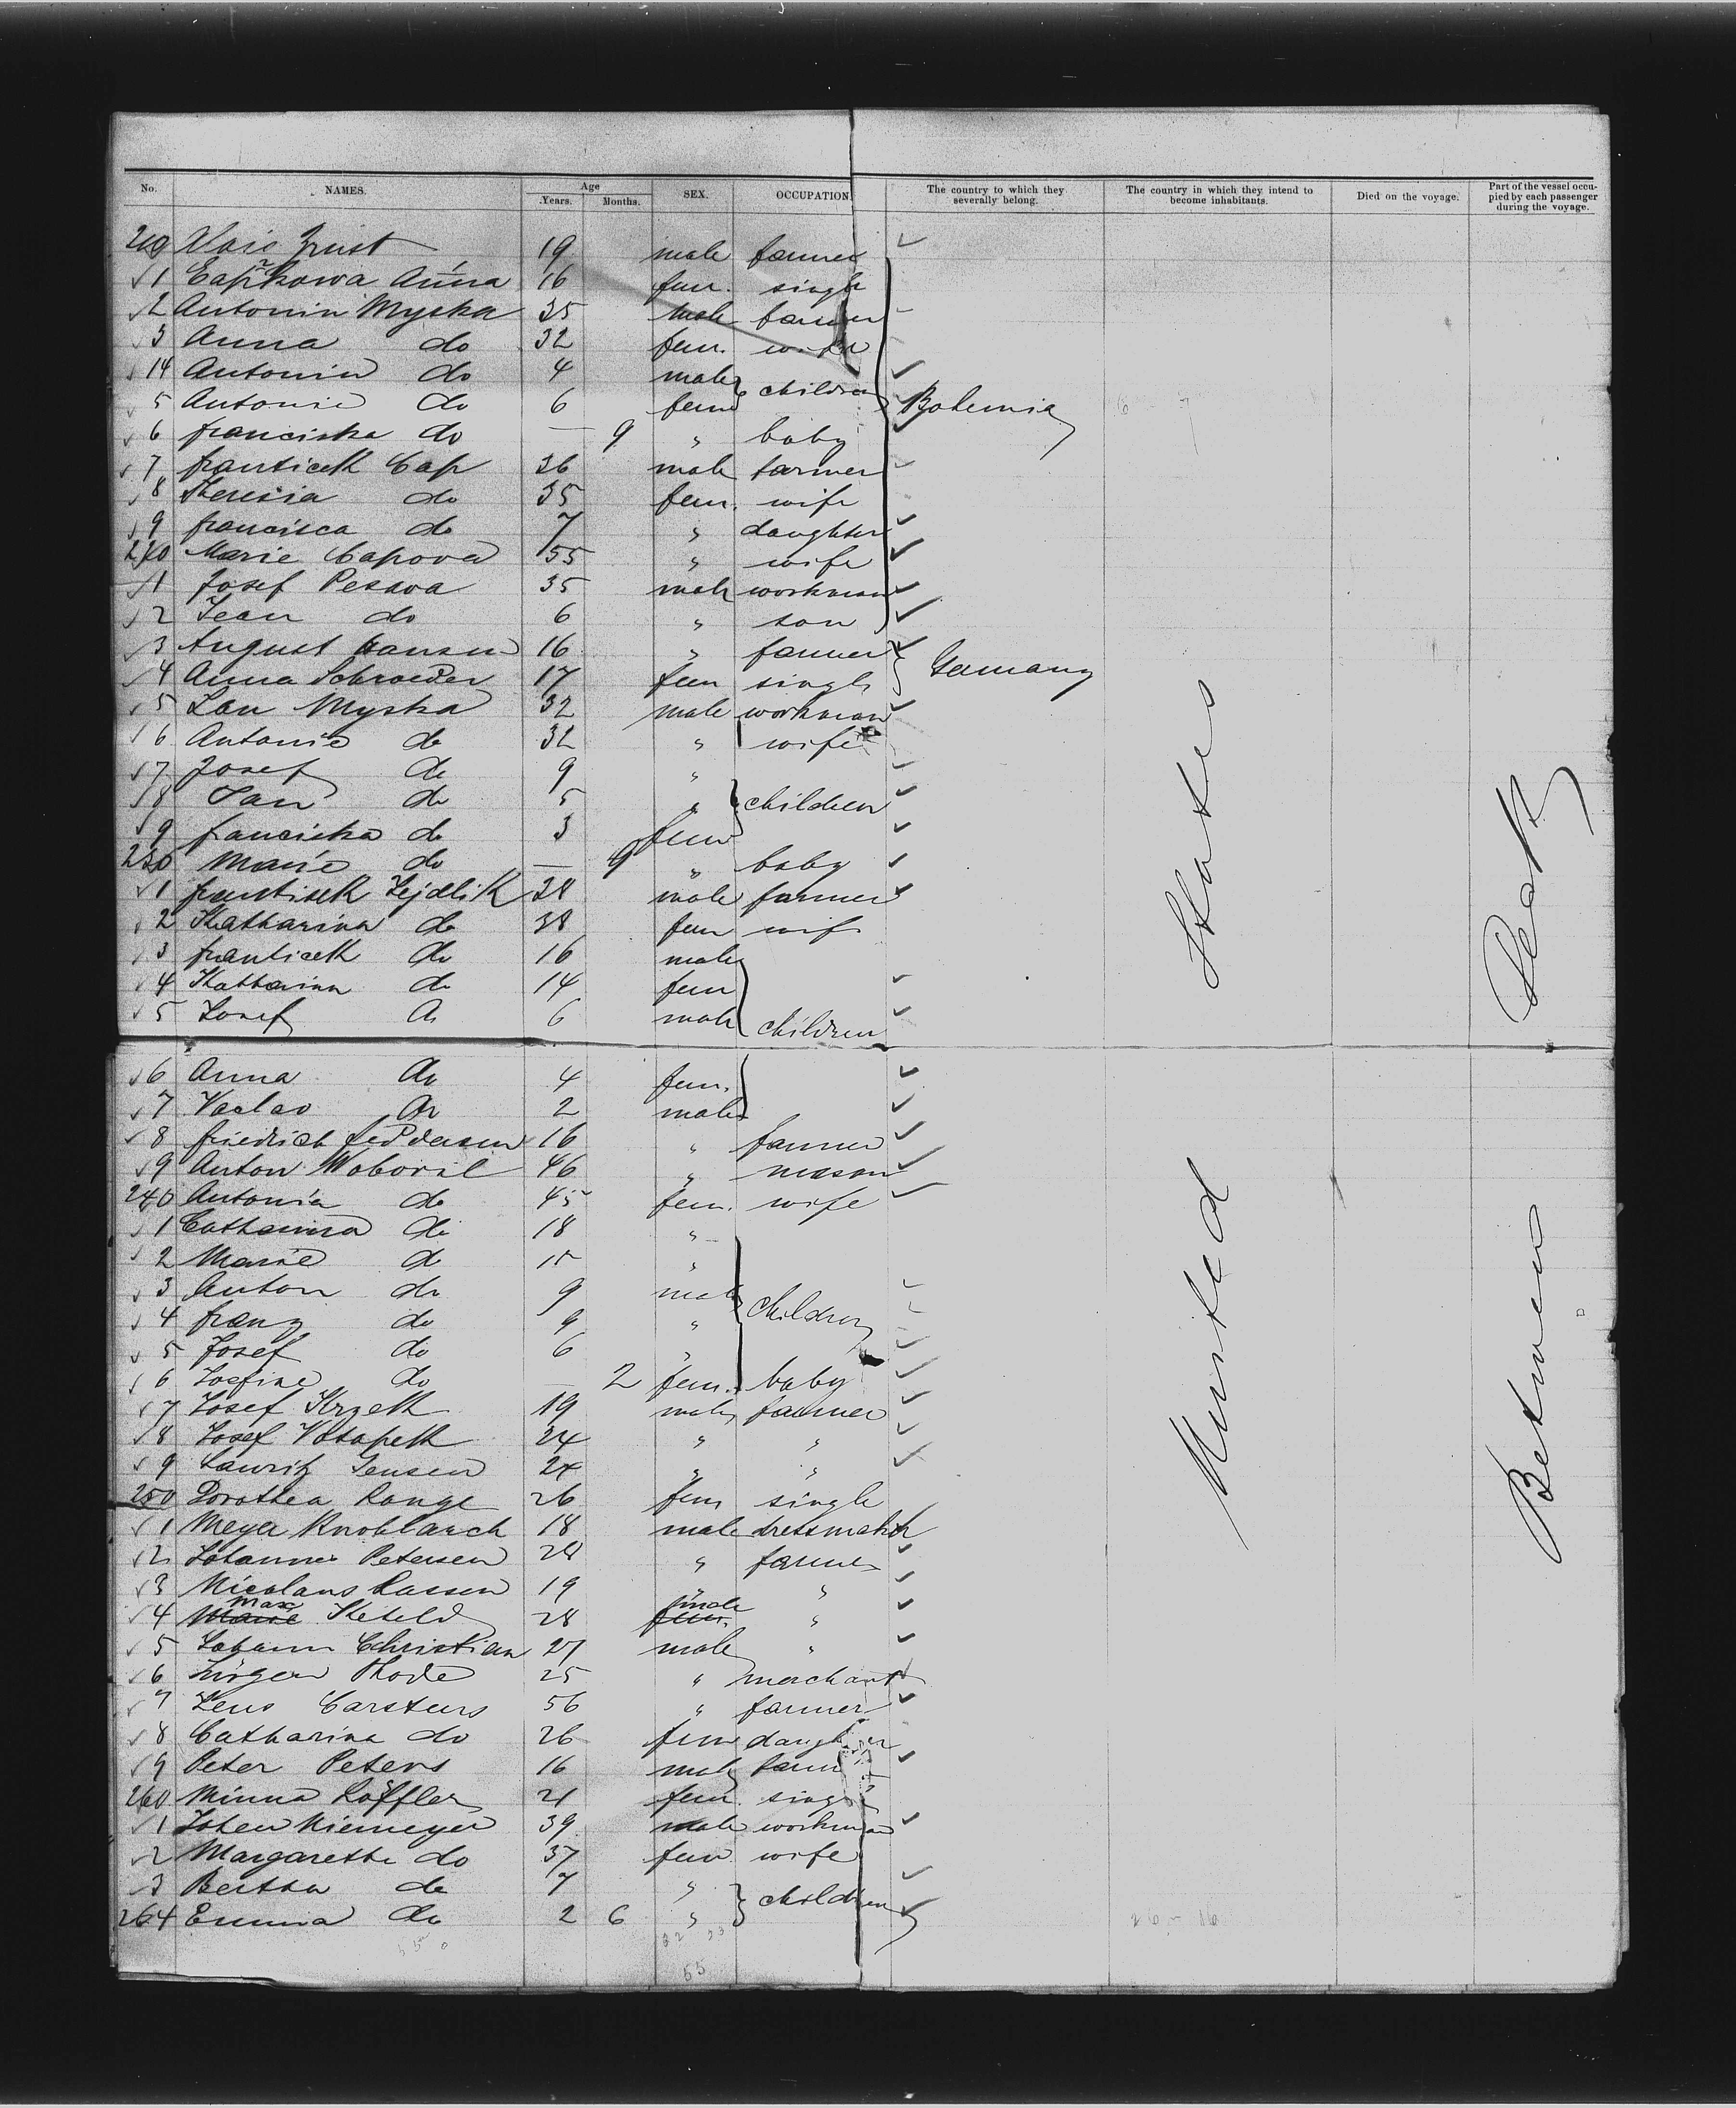 No. NAMES. Age Years. Months. SEX. OCCUPATION. The country to which they severally belong. The country in which they intend to become inhabitants. Died on the voyage. Part of the vessel occupied by each passenger during the voyage.
Alois 19 male farmer
1 Anna 16 fem. single
2 Antonin Myska 35 male farmer
3 Anna do 32 fem. wife
14 Antonin do 4 male children
5 Antonie do 6 fem Bohemia
6 franciska do — 9 " baby
7 frantisek Cap 36 male farmer
8 Theresia do 35 fem. wife
9 francisca do 7 " daughter
220 Marie Capova 55 " wife
1 Josef 35 male workman
2 Jean do 6 " son
3 August Hansen 16 " farmer
4 Anna Schroeder 17 fem single Germany
5 Jan Myska 32 male workman
6 Antonie do 32 " wife
7 Josef do 9 "
8 Jan do 5 " children
9 franciska do 3 fem
230 Marie do — 9 " baby
1 frantisek Zejdlik 38 male farmer
2 Katharina do 38 fem wif
3 frantisek do 16 male
4 Katharina do 14 fem
5 Josef do 6 male children
6 Anna do 4 fem.
7 Vaclav do 2 male
8 friedrich feddersen 16 " farmer
9 Anton Woboril 46 " mason
240 Antonia do 45 fem. wife
1 Catharina do 18 "
2 Marie do 15 "
3 Anton do 9 male children
4 franz do 9 "
5 Josef do 6 "
6 Josfine do — 2 fem. baby
7 Josef 19 male farmer
8 Josef Votapek 24 " "
9 Lauritz Jensen 24 " "
250 Dorothea Range 26 fem single
1 Meyer Knoblauch 18 male dressmaker
2 Johannes Petersen 28 " farmer
3 Nicolaus Lassen 19 " "
4 Marie Max Keteld 28 fem. male "
5 Johann Christian 27 male "
6 Jürgen Thode 25 " merchant
7 Jens Carstens 56 " farmer
8 Catharina do 26 fem daughter
9 Peter Peters 16 male farmer
260 Minna Löffler 21 fem. single
1 Johen Niemeyer 39 male workman
2 Margarethe do 37 fem wife
3 Bertha do 7 " children
264 Emma do 2 6 "
55
United States
Between Deck